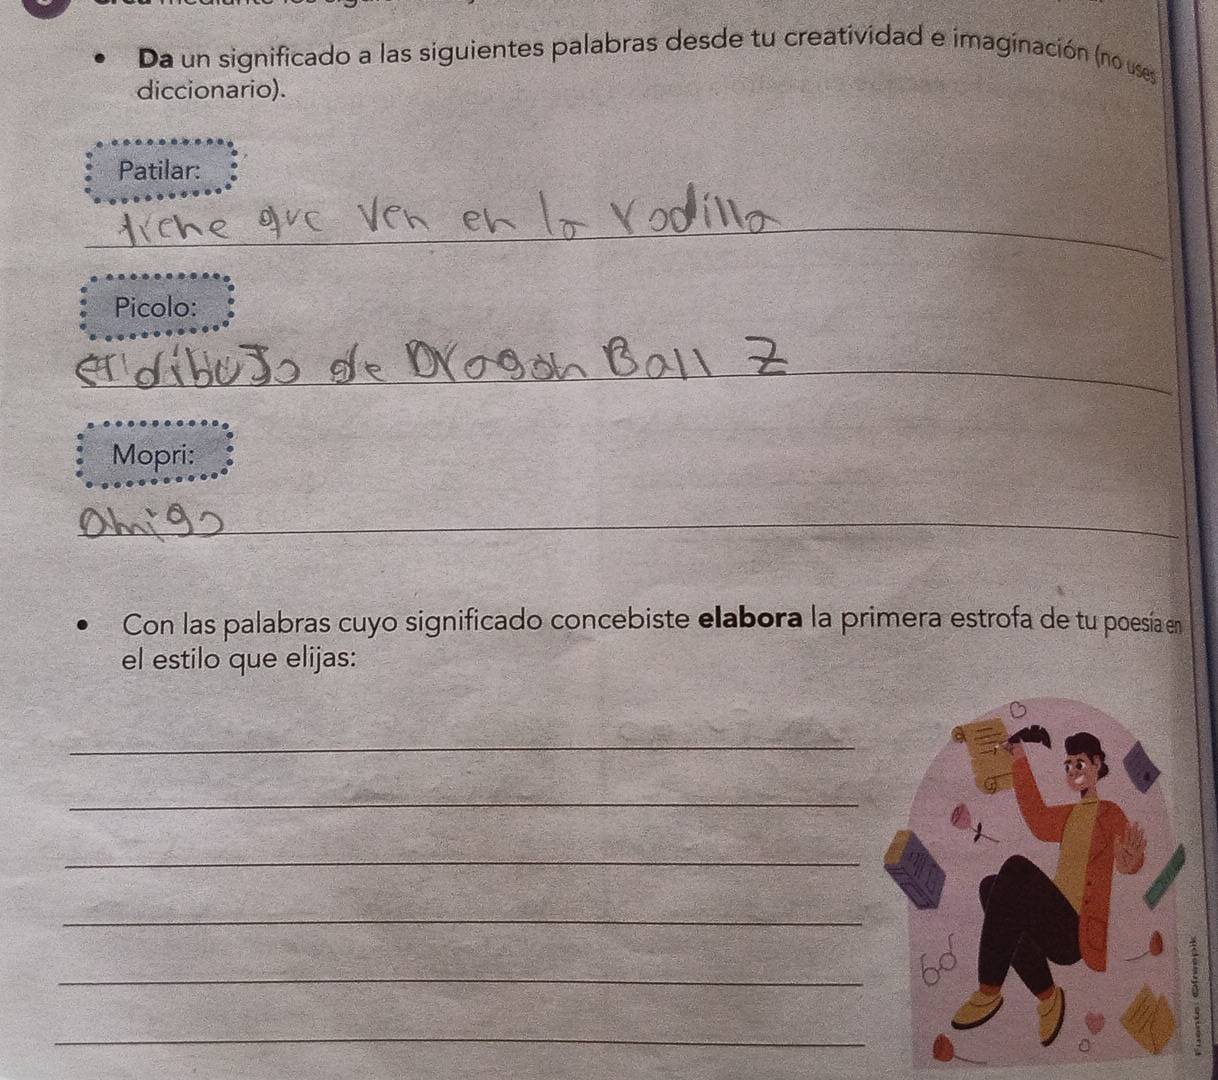 Da un significado a las siguientes palabras desde tu creatividad e imaginación (no uses
diccionario).
Patilar:
que ven en la rodilla
Picolo:
dibuJo de Dragon Ball Z
Mopri:
amigo
Con las palabras cuyo significado concebiste elabora la primera estrofa de tu poesía en
el estilo que elijas:
Fuente: @freepik